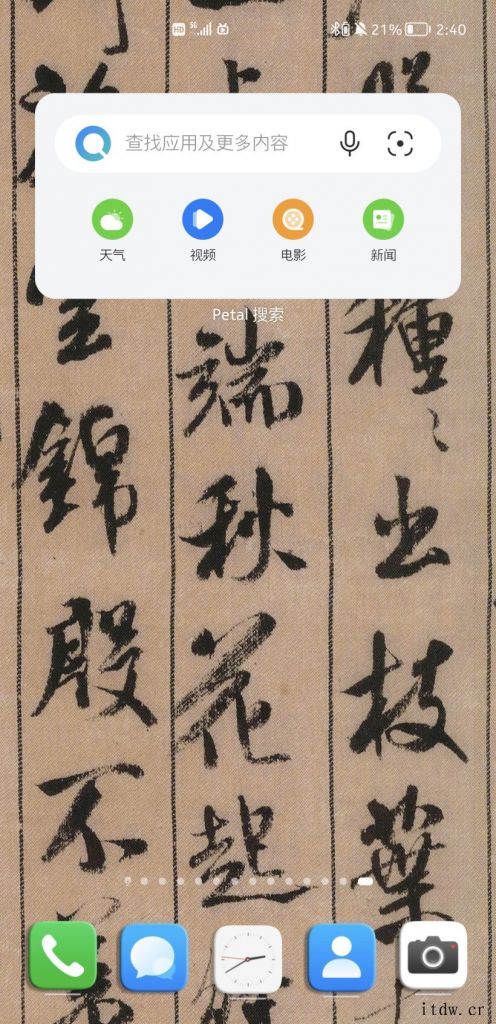 HD 5G 21% 2:40
查找应用及更多内容
天气 视频 电影 新闻
Petal 搜索
種〻出枝葉
端秋花起
錦殷不
itdw.cr